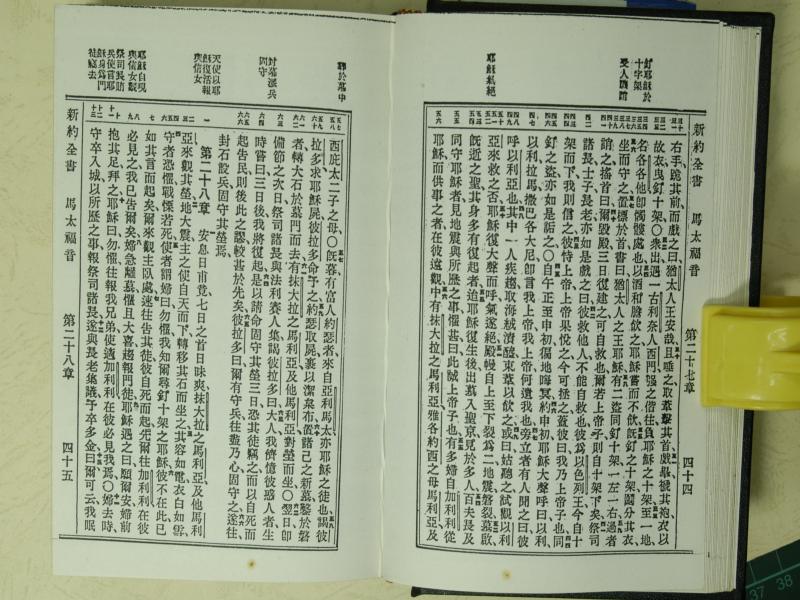 釘耶穌於
十字架
受人嘲誚
耶穌氣絕
新約全書 馬太福音 第二十七章 四十四
右手跪其前而戲之曰猶太人王安哉且唾之取葦擊其首戲畢褫其袍衣以
故衣曳釘十架○衆出遇一古利奈人西門強之偕往負耶穌之十架至一地
名各各他卽髑髏處也以酒和膽飲之耶穌嘗而不飲旣釘之十架鬮分其衣
坐而守之置標於首書曰猶太人之王耶穌有二盜同釘十架一左一右過者
誚之搖首曰爾毀殿三日復建之可自救也爾若上帝子則自十架下矣祭司
諸長士子長老亦如是戲之曰彼救他人不能自救也彼爲以色列王今自十
架而下我則信之彼恃上帝上帝果悅之今可拯之蓋彼曰我乃上帝子也同
釘之盜亦如是詬之○自午正至申初徧地晦冥約申初耶穌大聲呼曰以利
以利拉馬撒巴各大尼卽言我上帝我上帝何遺我也旁立者有人聞之曰彼
呼以利亞也其中一人疾趨取海絨漬醯束葦以飲之或曰姑聽之試觀以利
亞來救之否耶穌復大聲而呼氣遂絕殿幔自上至下裂爲二地震磐裂墓啟
旣逝之聖其身多有復起者迨耶穌復生後出墓入聖京見於多人百夫長及
同守耶穌者見地震與所歷之事懼甚曰此誠上帝子也有多婦自加利利從
耶穌而供事之者在彼遠觀中有抹大拉之馬利亞雅各約西之母馬利亞及
耶於墓中
封墓派兵
固守
天使以耶
穌復活報
與信女
耶穌自現
與信女觀
祭司長賄
兵使言耶
穌身爲門
徒竊去
新約全書 馬太福音 第二十八章 四十五
西庇太二子之母○旣暮有富人約瑟者來自亞利馬太亦耶穌之徒也謁彼
拉多求耶穌屍彼拉多命予之約瑟取屍裹以潔枲布置諸己之新墓鑿於磐
者轉大石於墓門而去有抹大拉之馬利亞及他馬利亞對塋而坐○翌日卽
備節之次日祭司諸長與法利賽人集謁彼拉多曰大人我儕憶彼惑人者生
時嘗曰三日後我將復起是以請命固守其塋三日恐其徒竊之而以自死而
起告民則後此之謬較甚於先矣彼拉多曰爾有守兵往盡乃心固守之遂往
封石設兵固守其塋焉
第二十八章 安息日甫竟七日之首日昧爽抹大拉之馬利亞及他馬利
亞來觀其塋地大震主之使自天而下轉移其石而坐之其容如電衣白如雪
守者恐懼戰慄若死使者謂婦曰勿懼我知爾尋釘十架之耶穌彼不在此已
如其言而起矣爾來觀主臥處速往告其徒彼自死而起先爾往加利利在彼
必見之我已告爾矣婦急離墓懼且大喜趨報門徒耶穌遇之曰願爾安婦前
抱其足拜之耶穌曰勿懼往報我兄弟使適加利利在彼必見我焉○婦去時
守卒入城以所歷之事報祭司諸長遂與長老集議予卒多金曰爾可云我眠
37 38